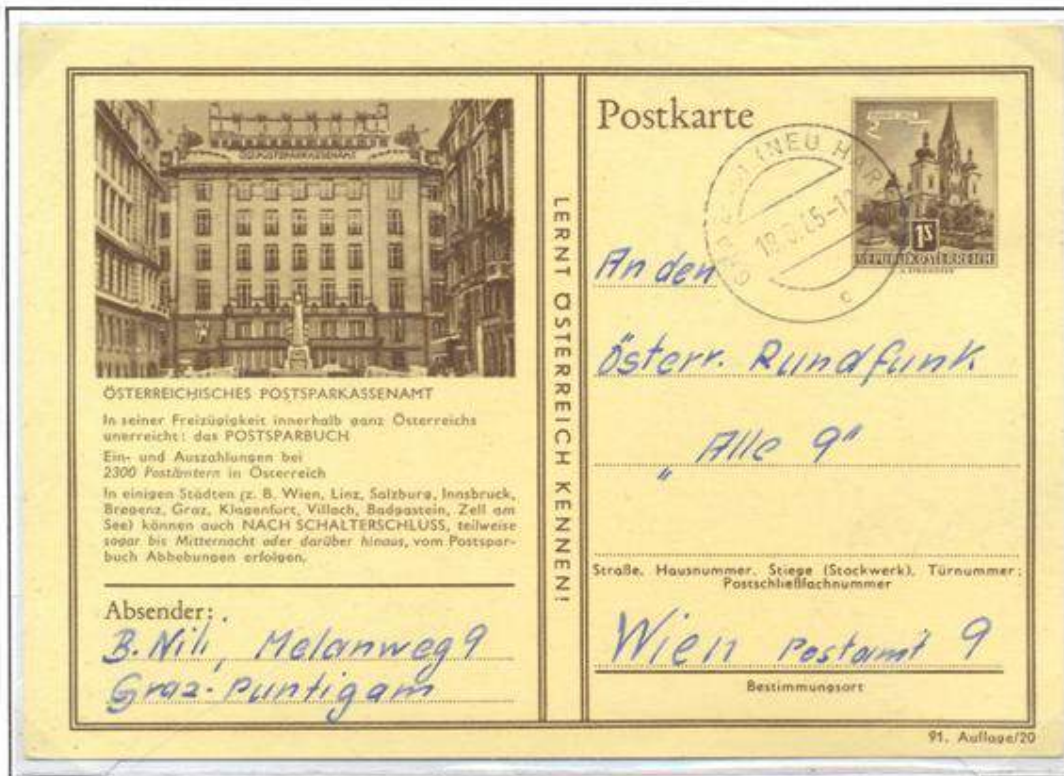 ÖSTERREICHISCHES POSTSPARKASSENAMT
In seiner Freizügigkeit innerhalb ganz Österreichs
unerreicht: das POSTSPARBUCH
Ein- und Auszahlungen bei
2300 Postämtern in Österreich
In einigen Städten (z. B. Wien, Linz, Salzburg, Innsbruck,
Bregenz, Graz, Klagenfurt, Villach, Badgastein, Zell am
See) können auch NACH SCHALTERSCHLUSS, teilweise
sogar bis Mitternacht oder darüber hinaus, vom Postspar-
buch Abhebungen erfolgen.
Absender:
B. Nili, Melanweg 9
Graz-Puntigam
LERNT ÖSTERREICH KENNEN!
Postkarte
1S
REPUBLIK ÖSTERREICH
(NEU HAR
c
An den
Österr. Rundfunk
"Alle 9"
Straße, Hausnummer, Stiege (Stockwerk), Türnummer;
Postschließfachnummer
Wien Postamt 9
Bestimmungsort
91. Auflage/20